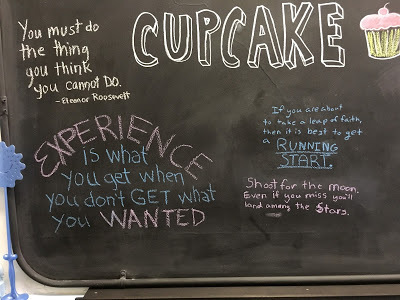 You must do
the thing
you think
you cannot DO.
-Eleanor Roosevelt
CUPCAKE
EXPERIENCE
IS what
you get when
you don't GET what
you WANTED
If you are about
to take a leap of faith,
then it is best to get
a RUNNING
START.
Shoot for the moon.
Even if you miss you'll
land among the Stars.